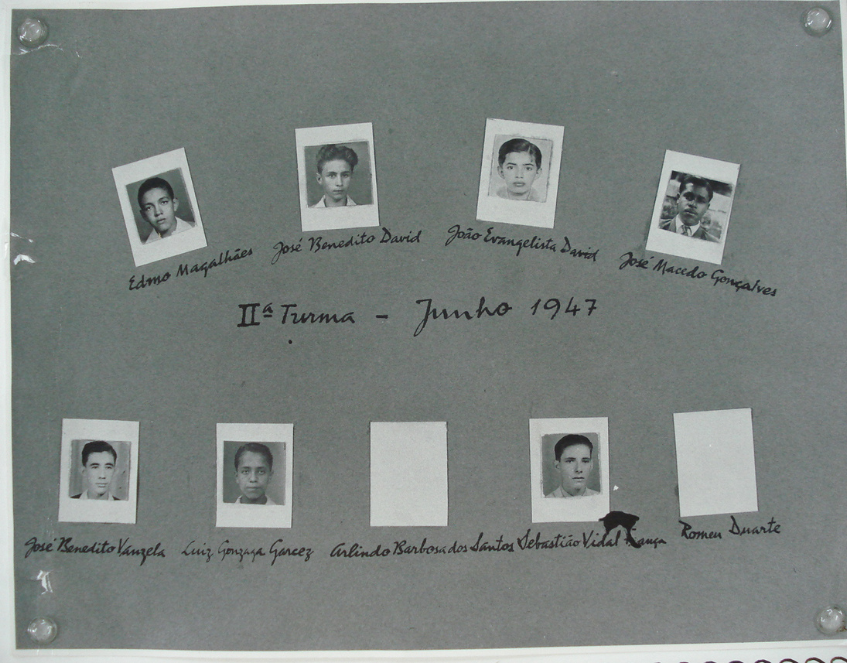 Edmo Magalhães
José Benedito David
João Evangelista David
José Macedo Gonçalves
IIª Turma - Junho 1947
José Benedito Vanzela
Luiz Gonzaga Garcez
Arlindo Barbosa dos Santos
Sebastião Vidal
Romeu Duarte